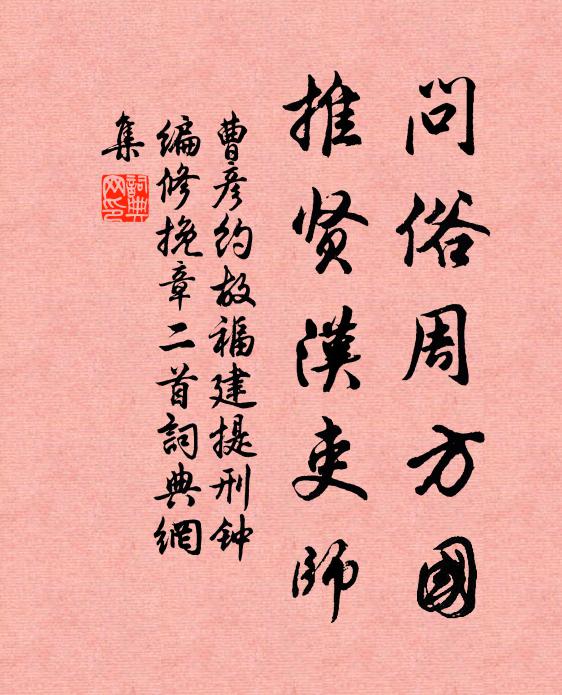 问俗周方國
推贤漢吏師
曹彦约故福建提刑钟
编修挽章二首詞典網
集
詞典
网印